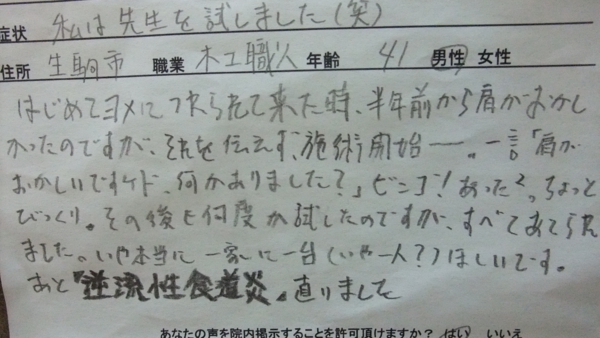 症状 私は先生を試しました(笑)
住所 生駒市 職業 木工職人 年齢 41 男性 女性
はじめてヨメにつれられて来た時、半年前から肩がおかし
かったのですが、それを伝えず、施術開始──。一言「肩が
おかしいですケド、何かありました?」ビンゴ!あった²。ちょっと
びっくり。その後も何度か試したのですが、すべてあてられ
ました。いや本当に一家に一台(いや一人?)ほしいです。
あと『逆流性食道炎』直りました
あなたの声を院内掲示することを許可頂けますか? はい いいえ